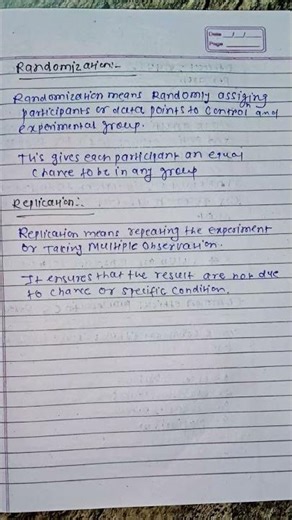 Date / /
Page
Randomization:-
Randomization means Randomly assiging
participants or data points to control and
experimental group.
This gives each participant an equal
chance to be in any group
Replication:-
Replication means repeating the experiment
or Taking Multiple Observation.
It ensures that the result are not due
to chance or specific condition.